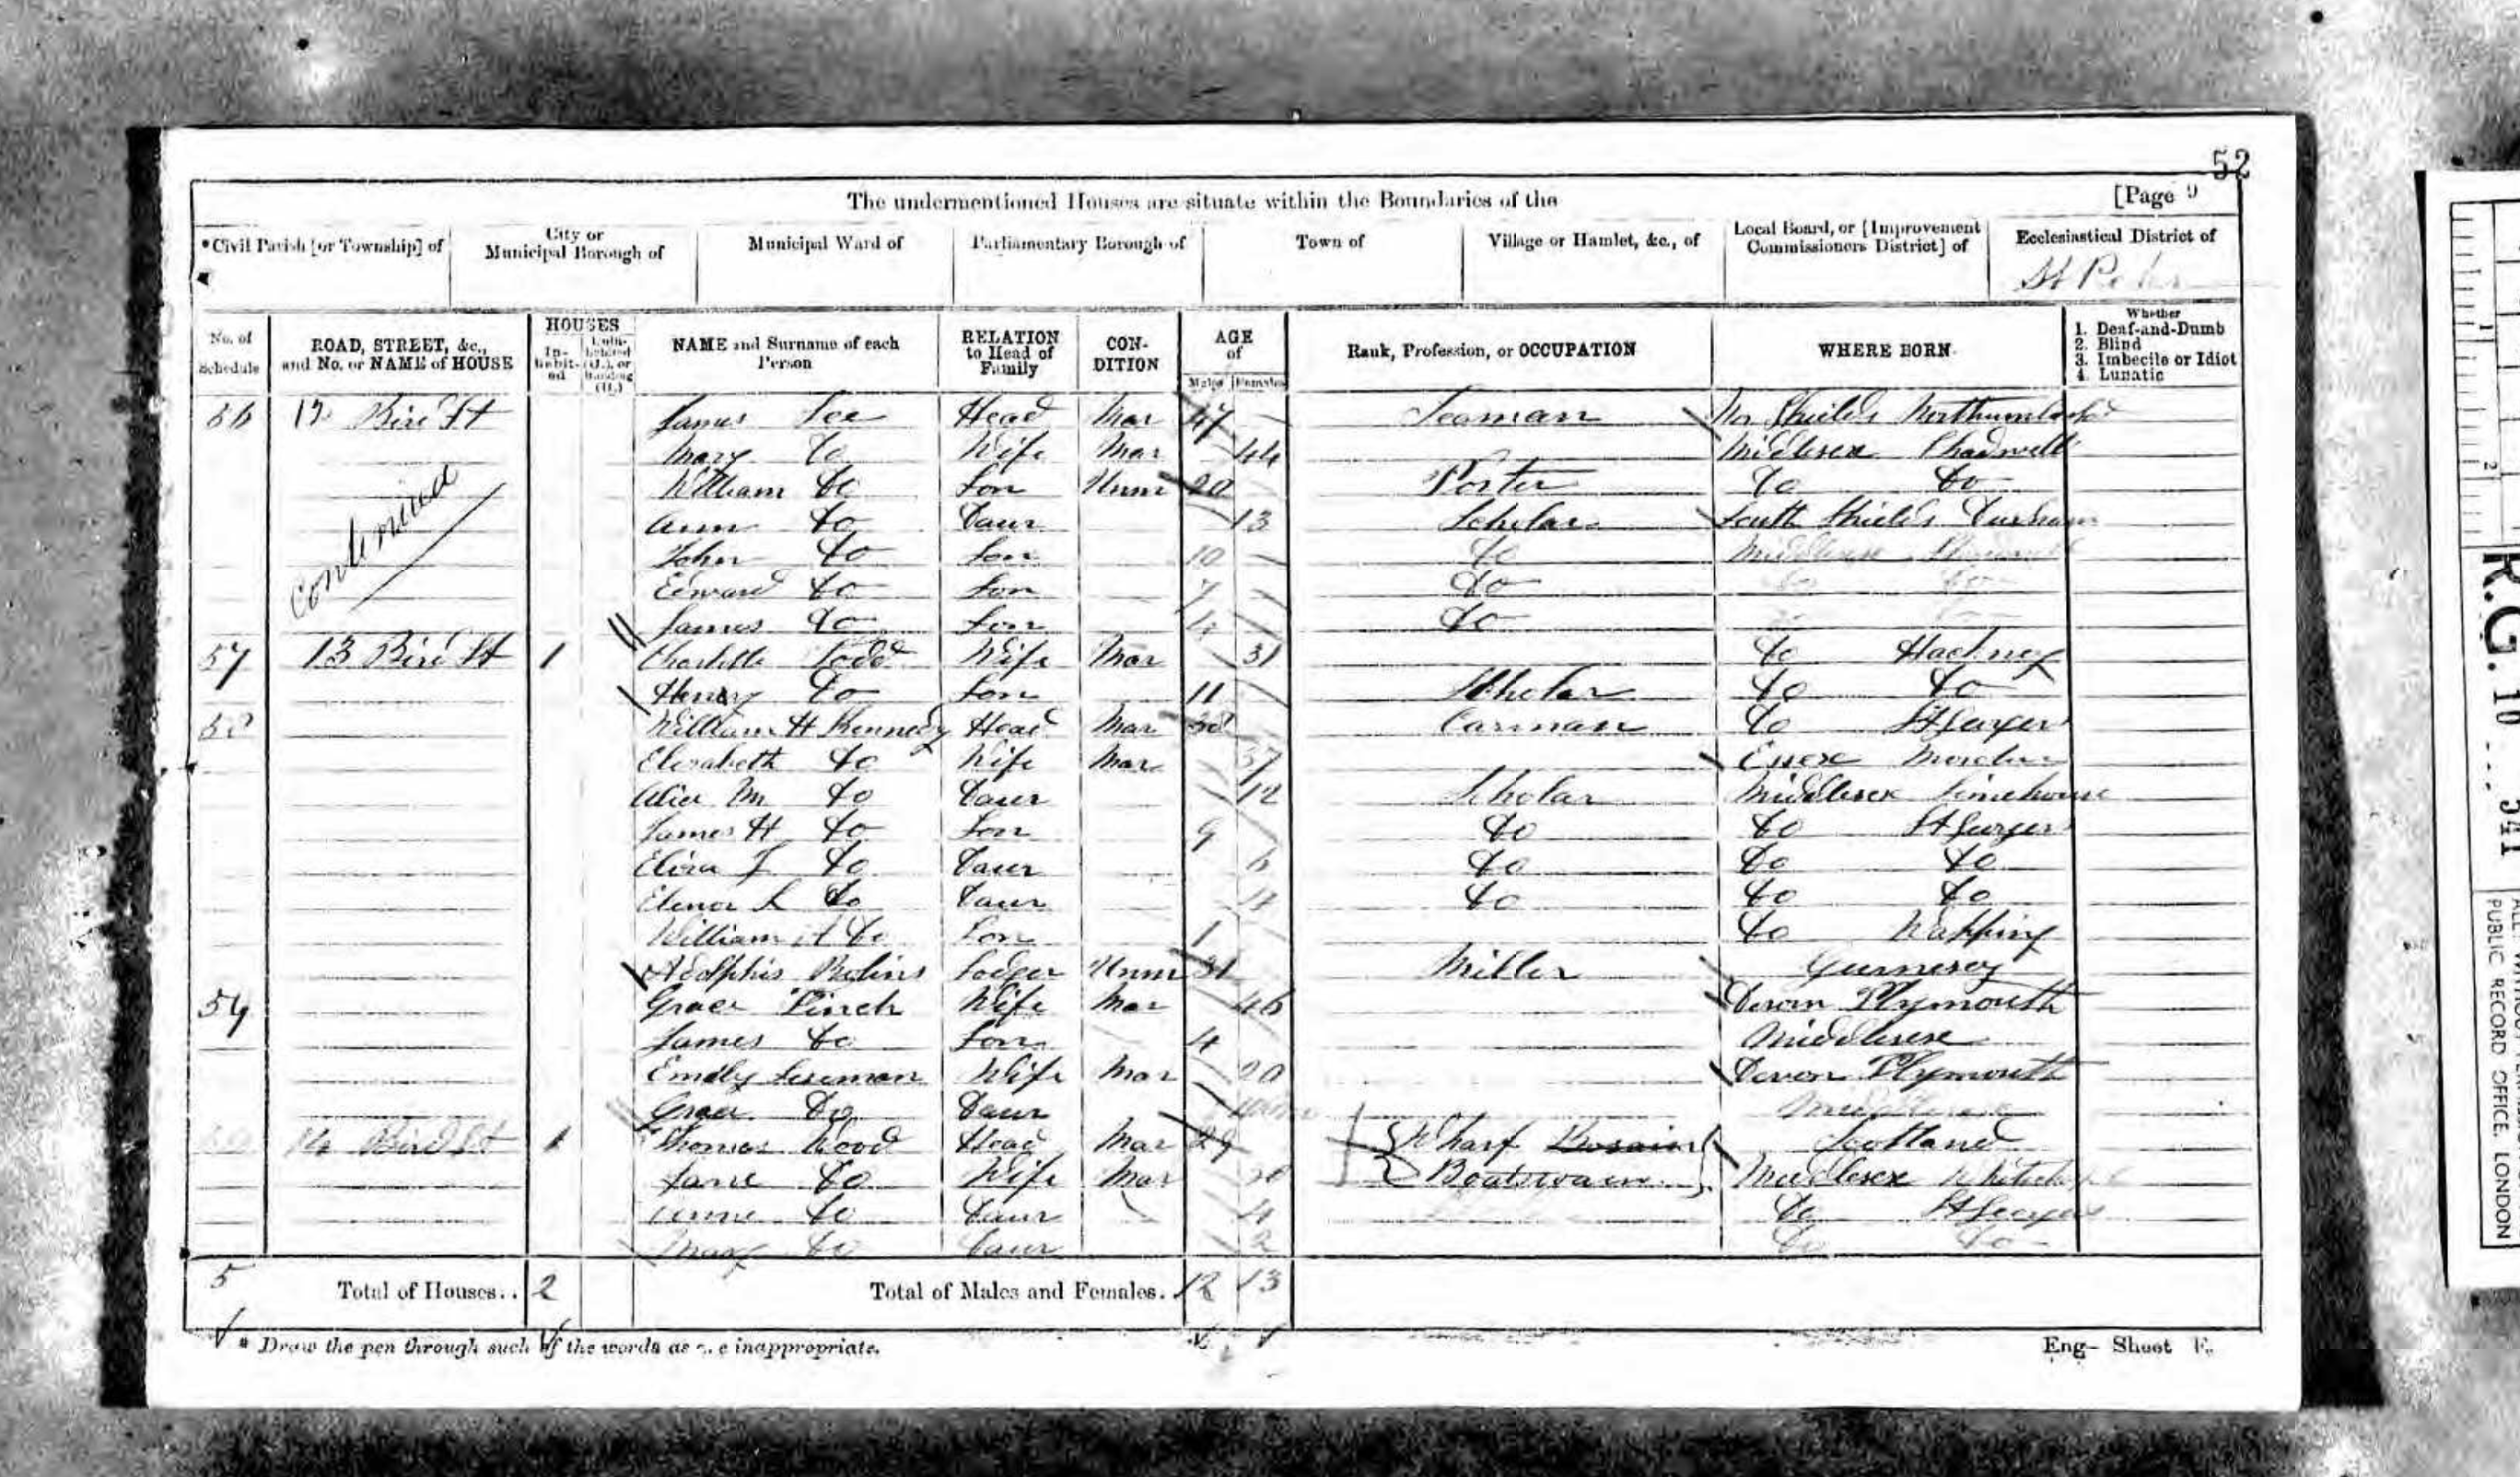 52
The undermentioned Houses are situate within the Boundaries of the [Page 9
*Civil Parish [or Township] of City or Municipal Borough of Municipal Ward of Parliamentary Borough of Town of Village or Hamlet, &c., of Local Board, or [Improvement Commissioners District] of Ecclesiastical District of
St Peter
No. of Schedule ROAD, STREET, &c., and No. or NAME of HOUSE HOUSES Inhabited Uninhabited (U.), or Building (B.) NAME and Surname of each Person RELATION to Head of Family CONDITION AGE of Males Females Rank, Profession, or OCCUPATION WHERE BORN Whether 1. Deaf-and-Dumb 2. Blind 3. Imbecile or Idiot 4. Lunatic
56 12 Bird St James Lee Head Mar 47 Seaman No Shields Northumberland
continued
Mary Do Wife Mar 44 Middlesex Shadwell
William Do Son Unm 20 Porter Do Do
Ann Do Daur 13 Scholar South Shields Durham
John Do Son 10 Do Middlesex Shadwell
Edward Do Son 7 Do Do Do
James Do Son Do
57 13 Bird St 1 Charlotte Todd Wife Mar 31 Do Hackney
Henry Do Son 11 Scholar Do Do
58 William H Kennedy Head Mar 38 Carman Do St Georges
Elizabeth Do Wife Mar 37 Essex
Alice M Do Daur 12 Scholar Middlesex Limehouse
James H Do Son 9 Do Do St Georges
Eliza Do Daur 6 Do Do Do
Elenor L Do Daur 4 Do Do Do
William Do Son 1 Do Wapping
Adolphis Robins Lodger Unm 31 Miller Gurnesey
59 Grace Finch Wife Mar 46 Devon Plymouth
James Do Son 4 Middlesex
Emily Wife Mar 20 Devon Plymouth
Grace Do Daur
14 Bird St 1 Thomas Wood Head Mar 29 Wharf Bosain Scotland
Jane Do Wife Mar 30 Boatswain Middlesex Whitechapel
Do Daur 4 Do St Georges
Mary Do Daur 2 Do Do
5 Total of Houses.. 2 Total of Males and Females. 12 13
* Draw the pen through such of the words as are inappropriate. Eng- Sheet E.
R.G. 10
541
PUBLIC RECORD OFFICE. LONDON